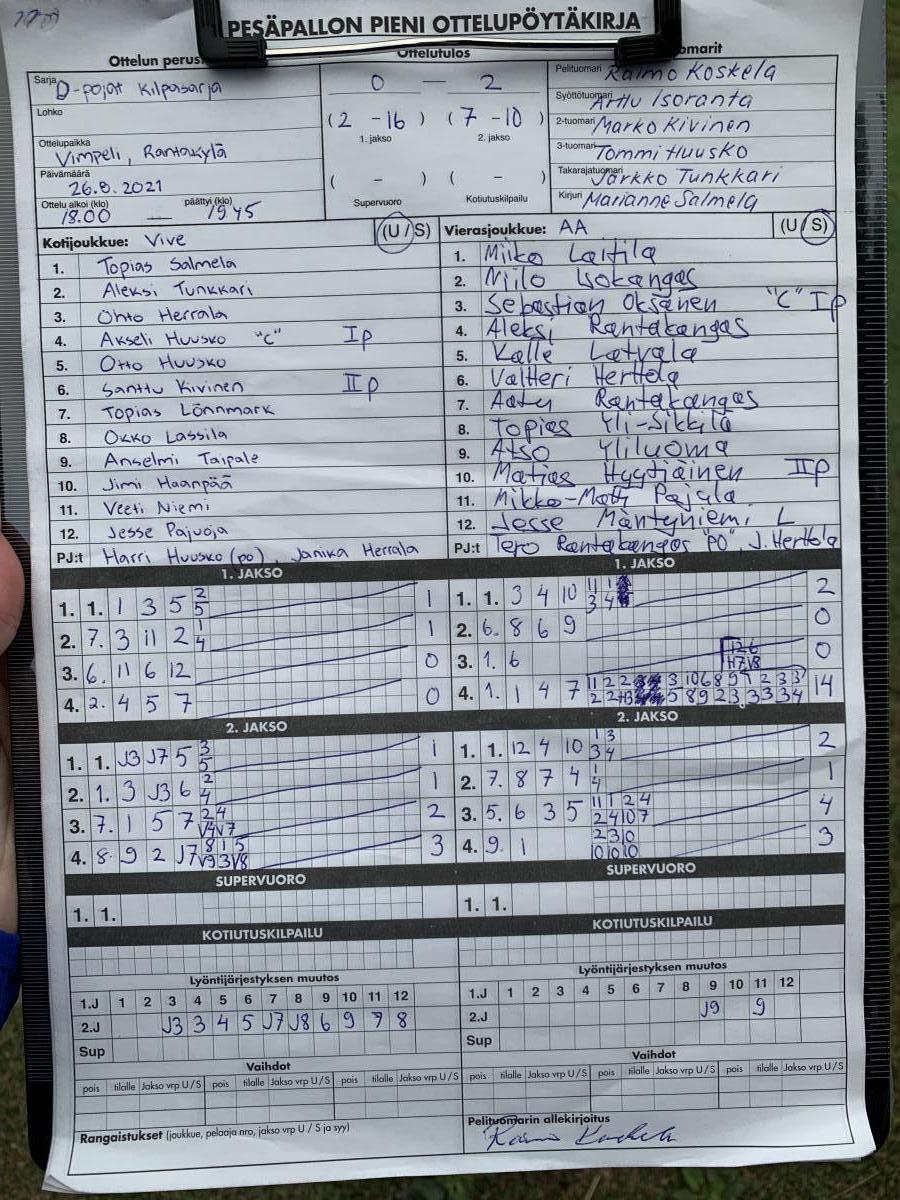 PESÄPALLON PIENI OTTELUPÖYTÄKIRJA
Ottelun perust
Sarja D-pojat kilpasarja
Lohko
Ottelupaikka
Vimpeli, Rantakylä
Päivämäärä
26.8.2021
Ottelu alkoi (klo) päättyi (klo)
18.00 — 1945
Ottelutulos
0 — 2
(2 -16) (7 -10)
1. jakso 2. jakso
( - ) ( - )
Supervuoro Kotiutuskilpailu
omarit
Pelituomari Raimo Koskela
Syöttötuomari Arttu Isoranta
2-tuomari Marko Kivinen
3-tuomari Tommi Huusko
Takarajatuomari Jarkko Tunkkari
Kirjuri Marianne Salmela
Kotijoukkue: Vive (U/S)
1. Topias Salmela
2. Aleksi Tunkkari
3. Ohto Herrala
4. Akseli Huusko "C" Ip
5. Otto Huusko
6. Santtu Kivinen IIp
7. Topias Lönnmark
8. Okko Lassila
9. Anselmi Taipale
10. Jimi Haanpää
11. Veeti Niemi
12. Jesse Pajuoja
PJ:t Harri Huusko (po), Janika Herrala
Vierasjoukkue: AA (U/S)
1. Miiko Laitila
2. Niilo Isokangas
3. Sebastian Oksanen "C" Ip
4. Aleksi Rantakangas
5. Kalle Latvala
6. Valtteri Herttola
7. Aatu Rantakangas
8. Topias Yli-Sikkilä
9. Atso Yliluoma
10. Matias Hyytiäinen IIp
11. Mikko-Matti Pajula
12. Jesse Mäntyniemi L
PJ:t Tero Rantakangas "PO", J. Herttola
1. JAKSO
1. 1. 1 3 5 2 1
5
2. 7. 3 11 2 1 1
4
3. 6. 11 6 12 0
4. 2. 4 5 7 0
2. JAKSO
1. 1. J3 J7 5 3 1
5
2. 1. 3 J3 6 2 1
4
3. 7. 1 5 7 2 4 2
V4 V7
4. 8. 9 2 J7 8 1 5 3
V9 3 V8
SUPERVUORO
1. 1.
KOTIUTUSKILPAILU
Lyöntijärjestyksen muutos
1.J 1 2 3 4 5 6 7 8 9 10 11 12
2.J J3 3 4 5 J7 J8 6 9 7 8
Sup
Vaihdot
pois tilalle Jakso vrp U/S pois tilalle Jakso vrp U/S pois tilalle Jakso vrp U/S
Rangaistukset (joukkue, pelaaja nro, jakso vrp U / S ja syy)
1. JAKSO
1. 1. 3 4 10 11 1 2
3 4
2. 6. 8 6 9 0
3. 1. 6 0
4. 1. 1 4 7 14
2. JAKSO
1. 1. 12 4 10 1 3 2
3 4
2. 7. 8 7 4 1 1
4
3. 5. 6 3 5 11 1 2 4 4
2 4 10 7
4. 9. 1 2 3 10 3
10 10 10
SUPERVUORO
1. 1.
KOTIUTUSKILPAILU
Lyöntijärjestyksen muutos
1.J 1 2 3 4 5 6 7 8 9 10 11 12
2.J J9 9
Sup
Vaihdot
pois tilalle Jakso vrp U/S pois tilalle Jakso vrp U/S pois tilalle Jakso vrp U/S
Pelituomarin allekirjoitus